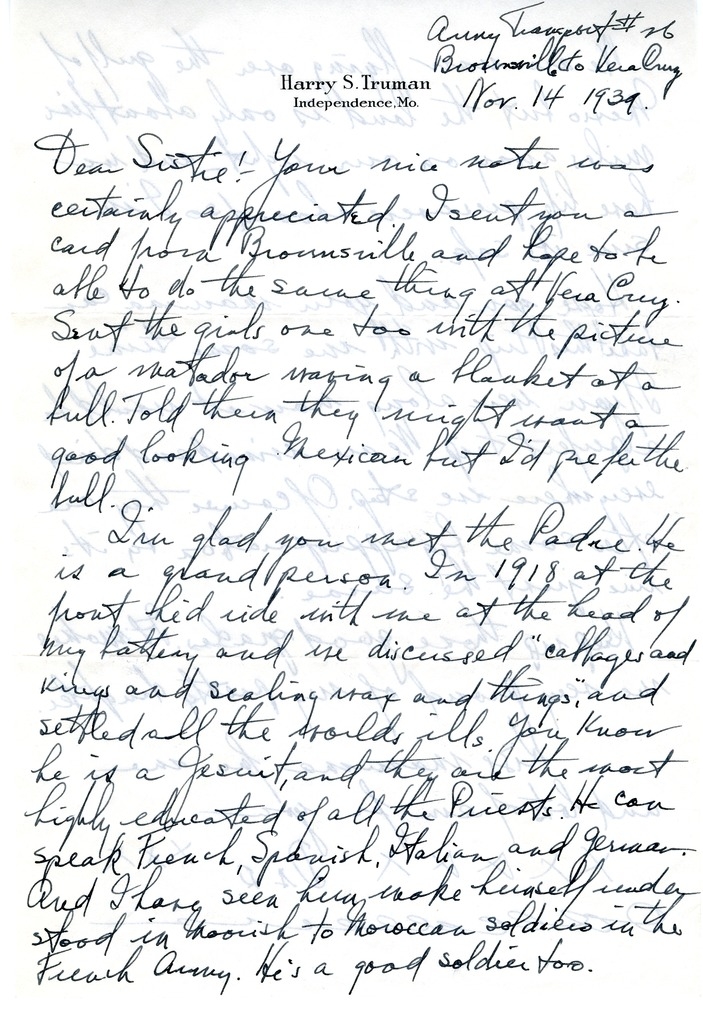 Army Transport #26
Brownsville to Vera Cruz
Nov. 14 1939.
Harry S. Truman
Independence, Mo.
Dear Sistie!- Your nice note was
certainly appreciated. I sent you a
card from Brownsville and hope to be
able to do the same thing at Vera Cruz.
Sent the girls one too with the picture
of a matador waving a blanket at a
bull. Told them they might want a
good looking Mexican but I'd prefer the
bull.
I'm glad you met the Padre. He
is a grand person. In 1918 at the
front he'd ride with me at the head of
my battery and we discussed "cabbages and
kings and sealing wax and things", and
settled all the worlds ills. You know
he is a Jesuit, and they are the most
highly educated of all the Priests. He can
speak French, Spanish, Italian and German.
And I have seen him make himself under
stood in Moorish to Moroccan soldiers in the
French Army. He's a good soldier too.